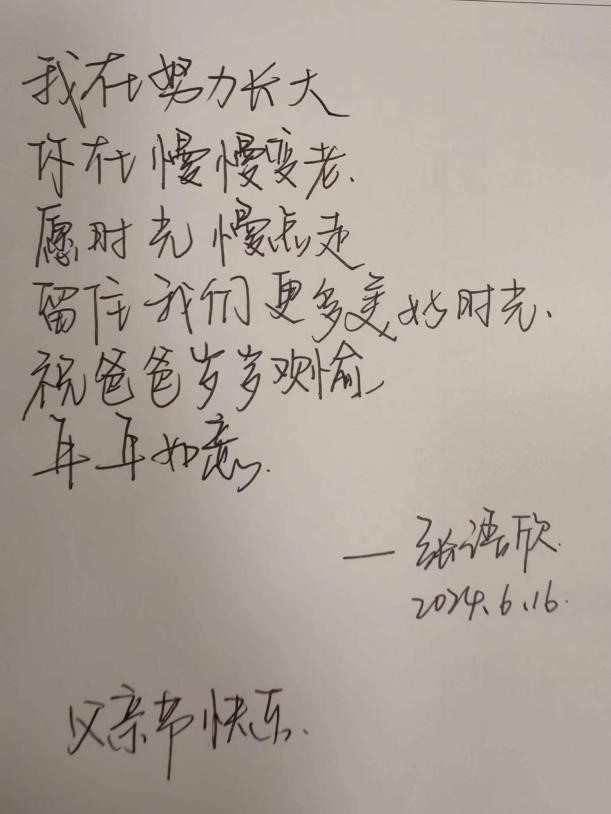 我在努力长大
你在慢慢变老.
愿时光慢点走
留住我们更多美好时光.
祝爸爸岁岁欢愉
年年如意.
— 张语欣.
2024.6.16.
父亲节快乐.